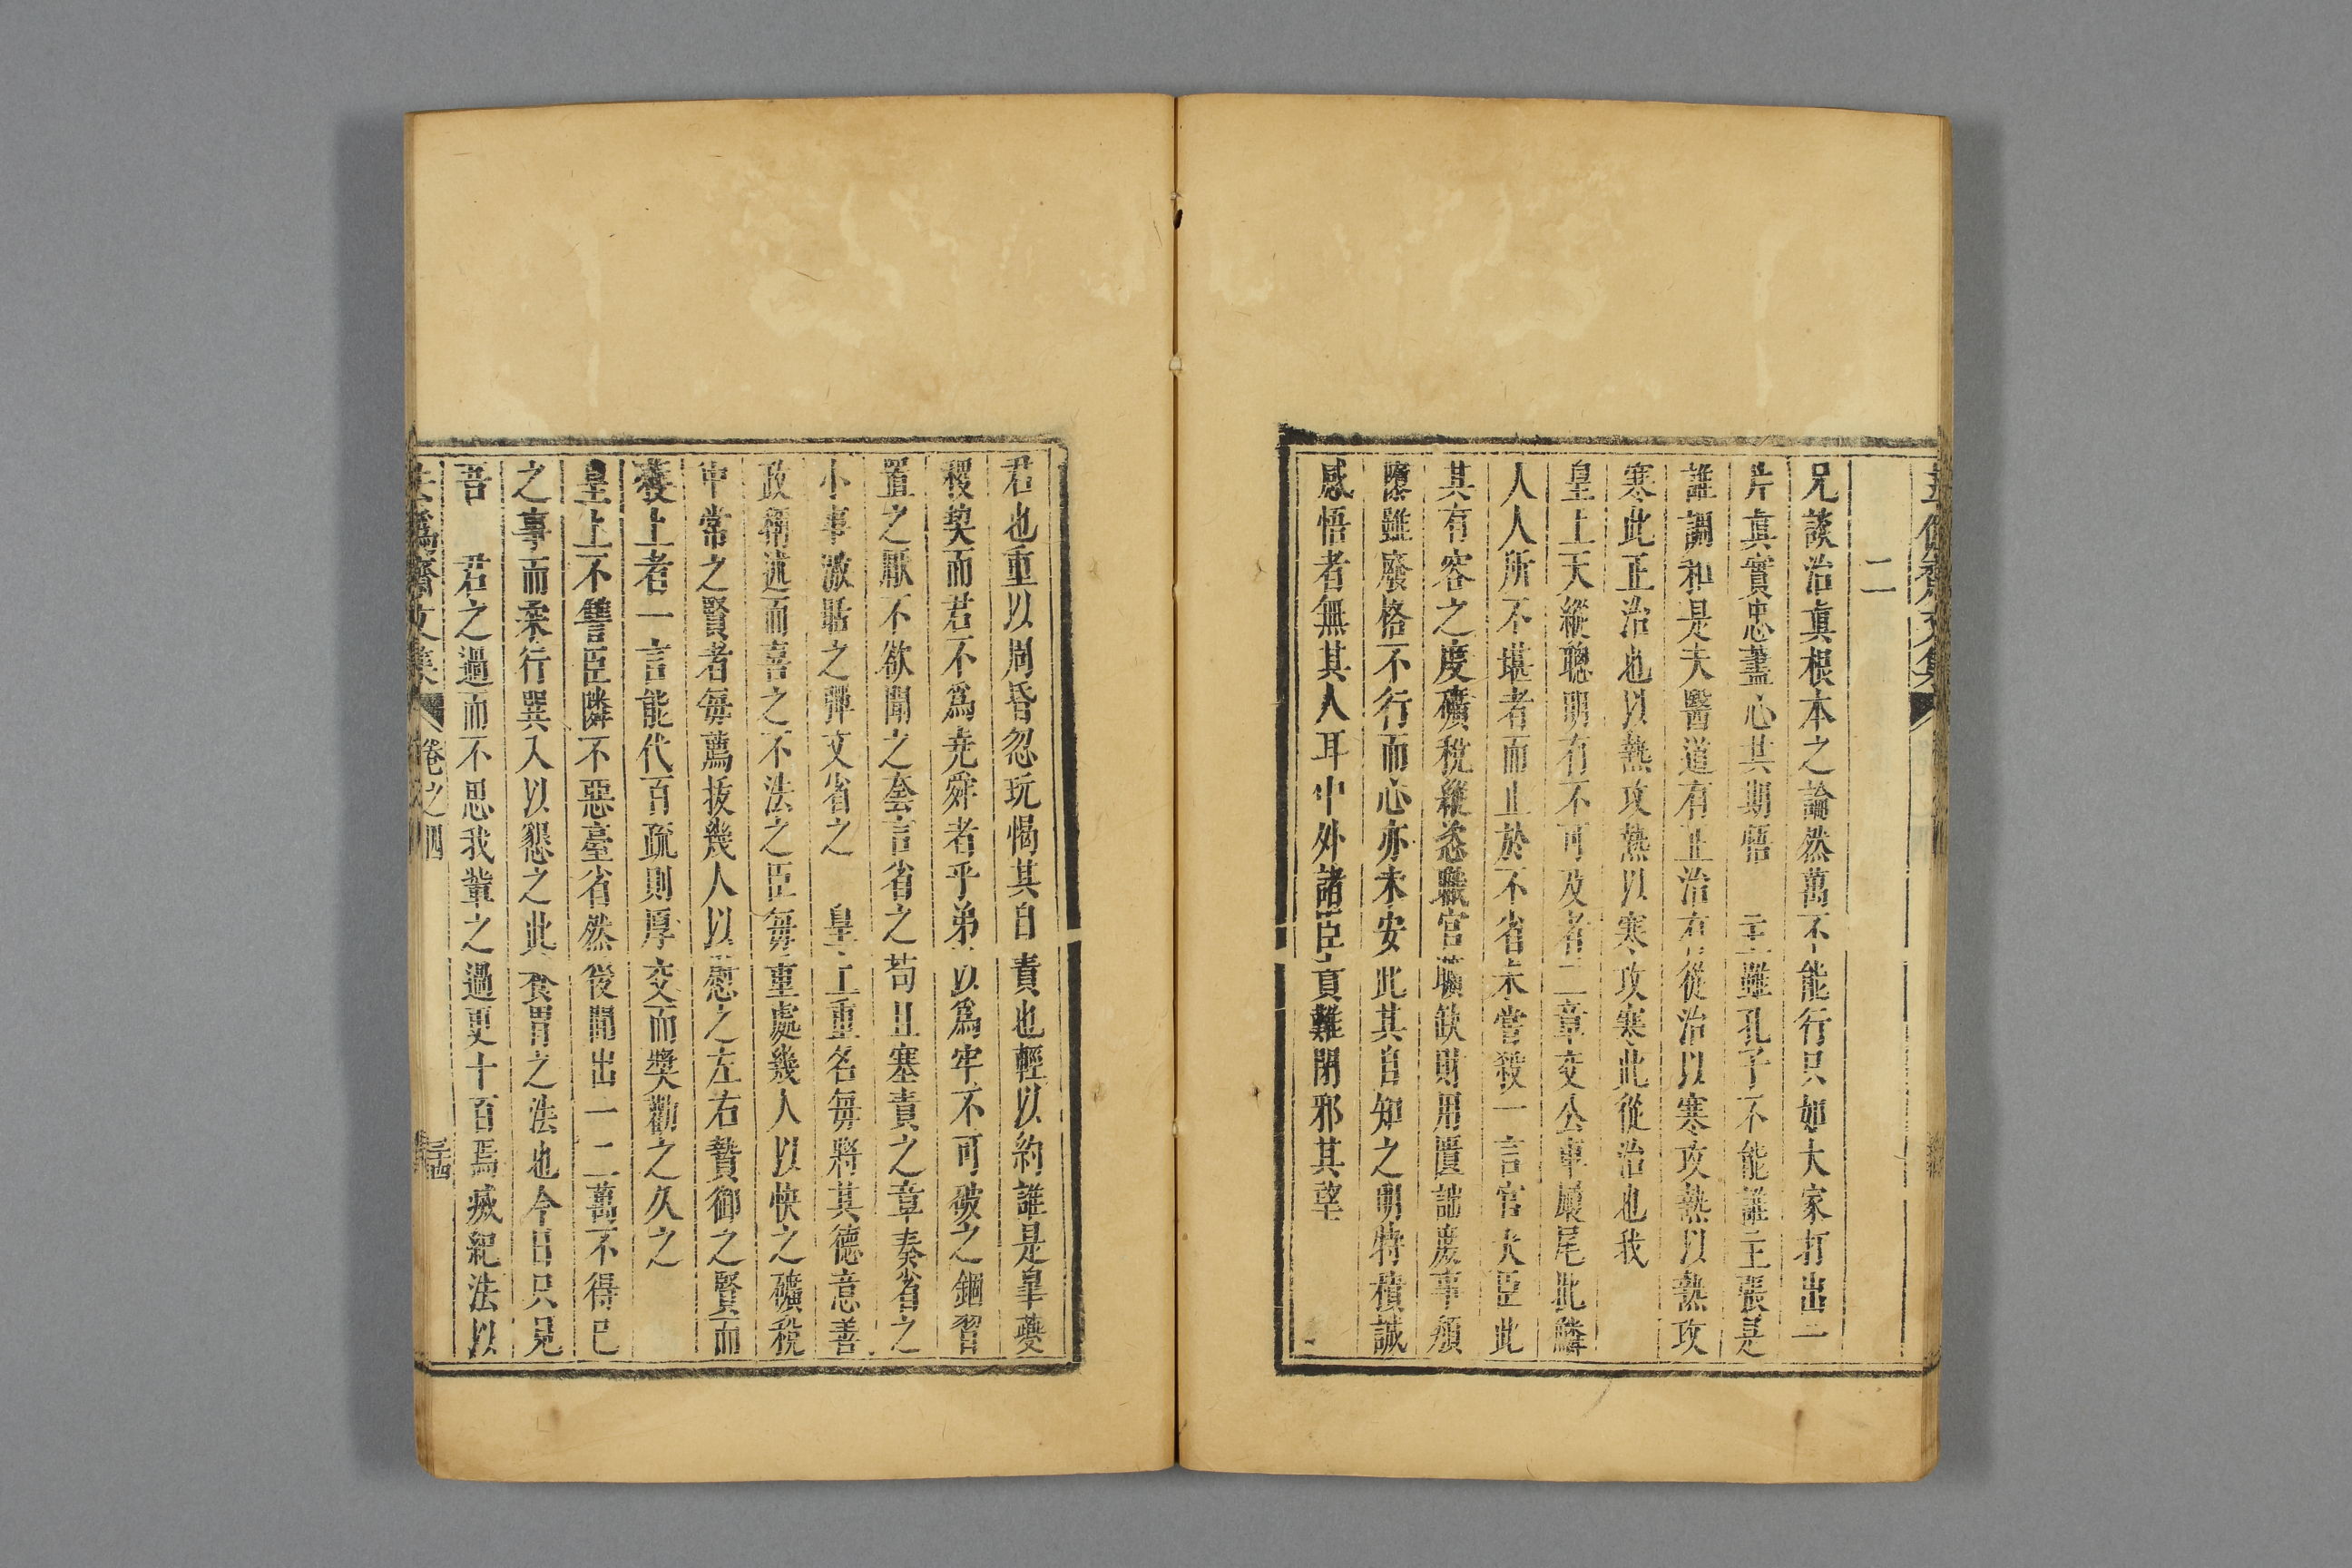 二
兄談治真根本之論然萬不能行只如大家打出一
片真實忠藎心其期悟　主雖孔子不能誰主張是
誰調和是夫醫道有正治有從治以寒攻熱以熱攻
寒此正治也以熱攻熱以寒攻寒此從治也我
皇上天縱聰明有不可及者二章交公車嚴尾批鱗
人人所不堪者而止於不省未嘗殺一言官大臣此
其有容之度礦稅縱恣職官曠缺財用匱詘慶事頹
隳雖廢格不行而心亦未安此其自知之明特積誠
感悟者無其人耳中外諸臣責難閉邪其望
君也重以周昏忽玩愒其自責也輕以約誰是皐夔
稷契而君不為堯舜者乎弟以為牢不可破之錮習
置之厭不欲聞之套言省之苟且塞責之章奏省之
小事激聒之彈文省之　皇上重名每將其德意善
政稱述而喜之不法之臣每重處幾人以快之礦稅
中常之賢者每薦拔幾人以慰之左右贊御之賢而
獲上者一言能代百疏則厚交而獎勸之久之
皇上不讐臣隣不惡臺省然後開出一二萬不得已
之事而柔行巽入以懇之此食胃之法也今日只見
吾　君之過而不思我輩之過更十百焉滅紀法以
去偽齋文集　卷之四　三十四